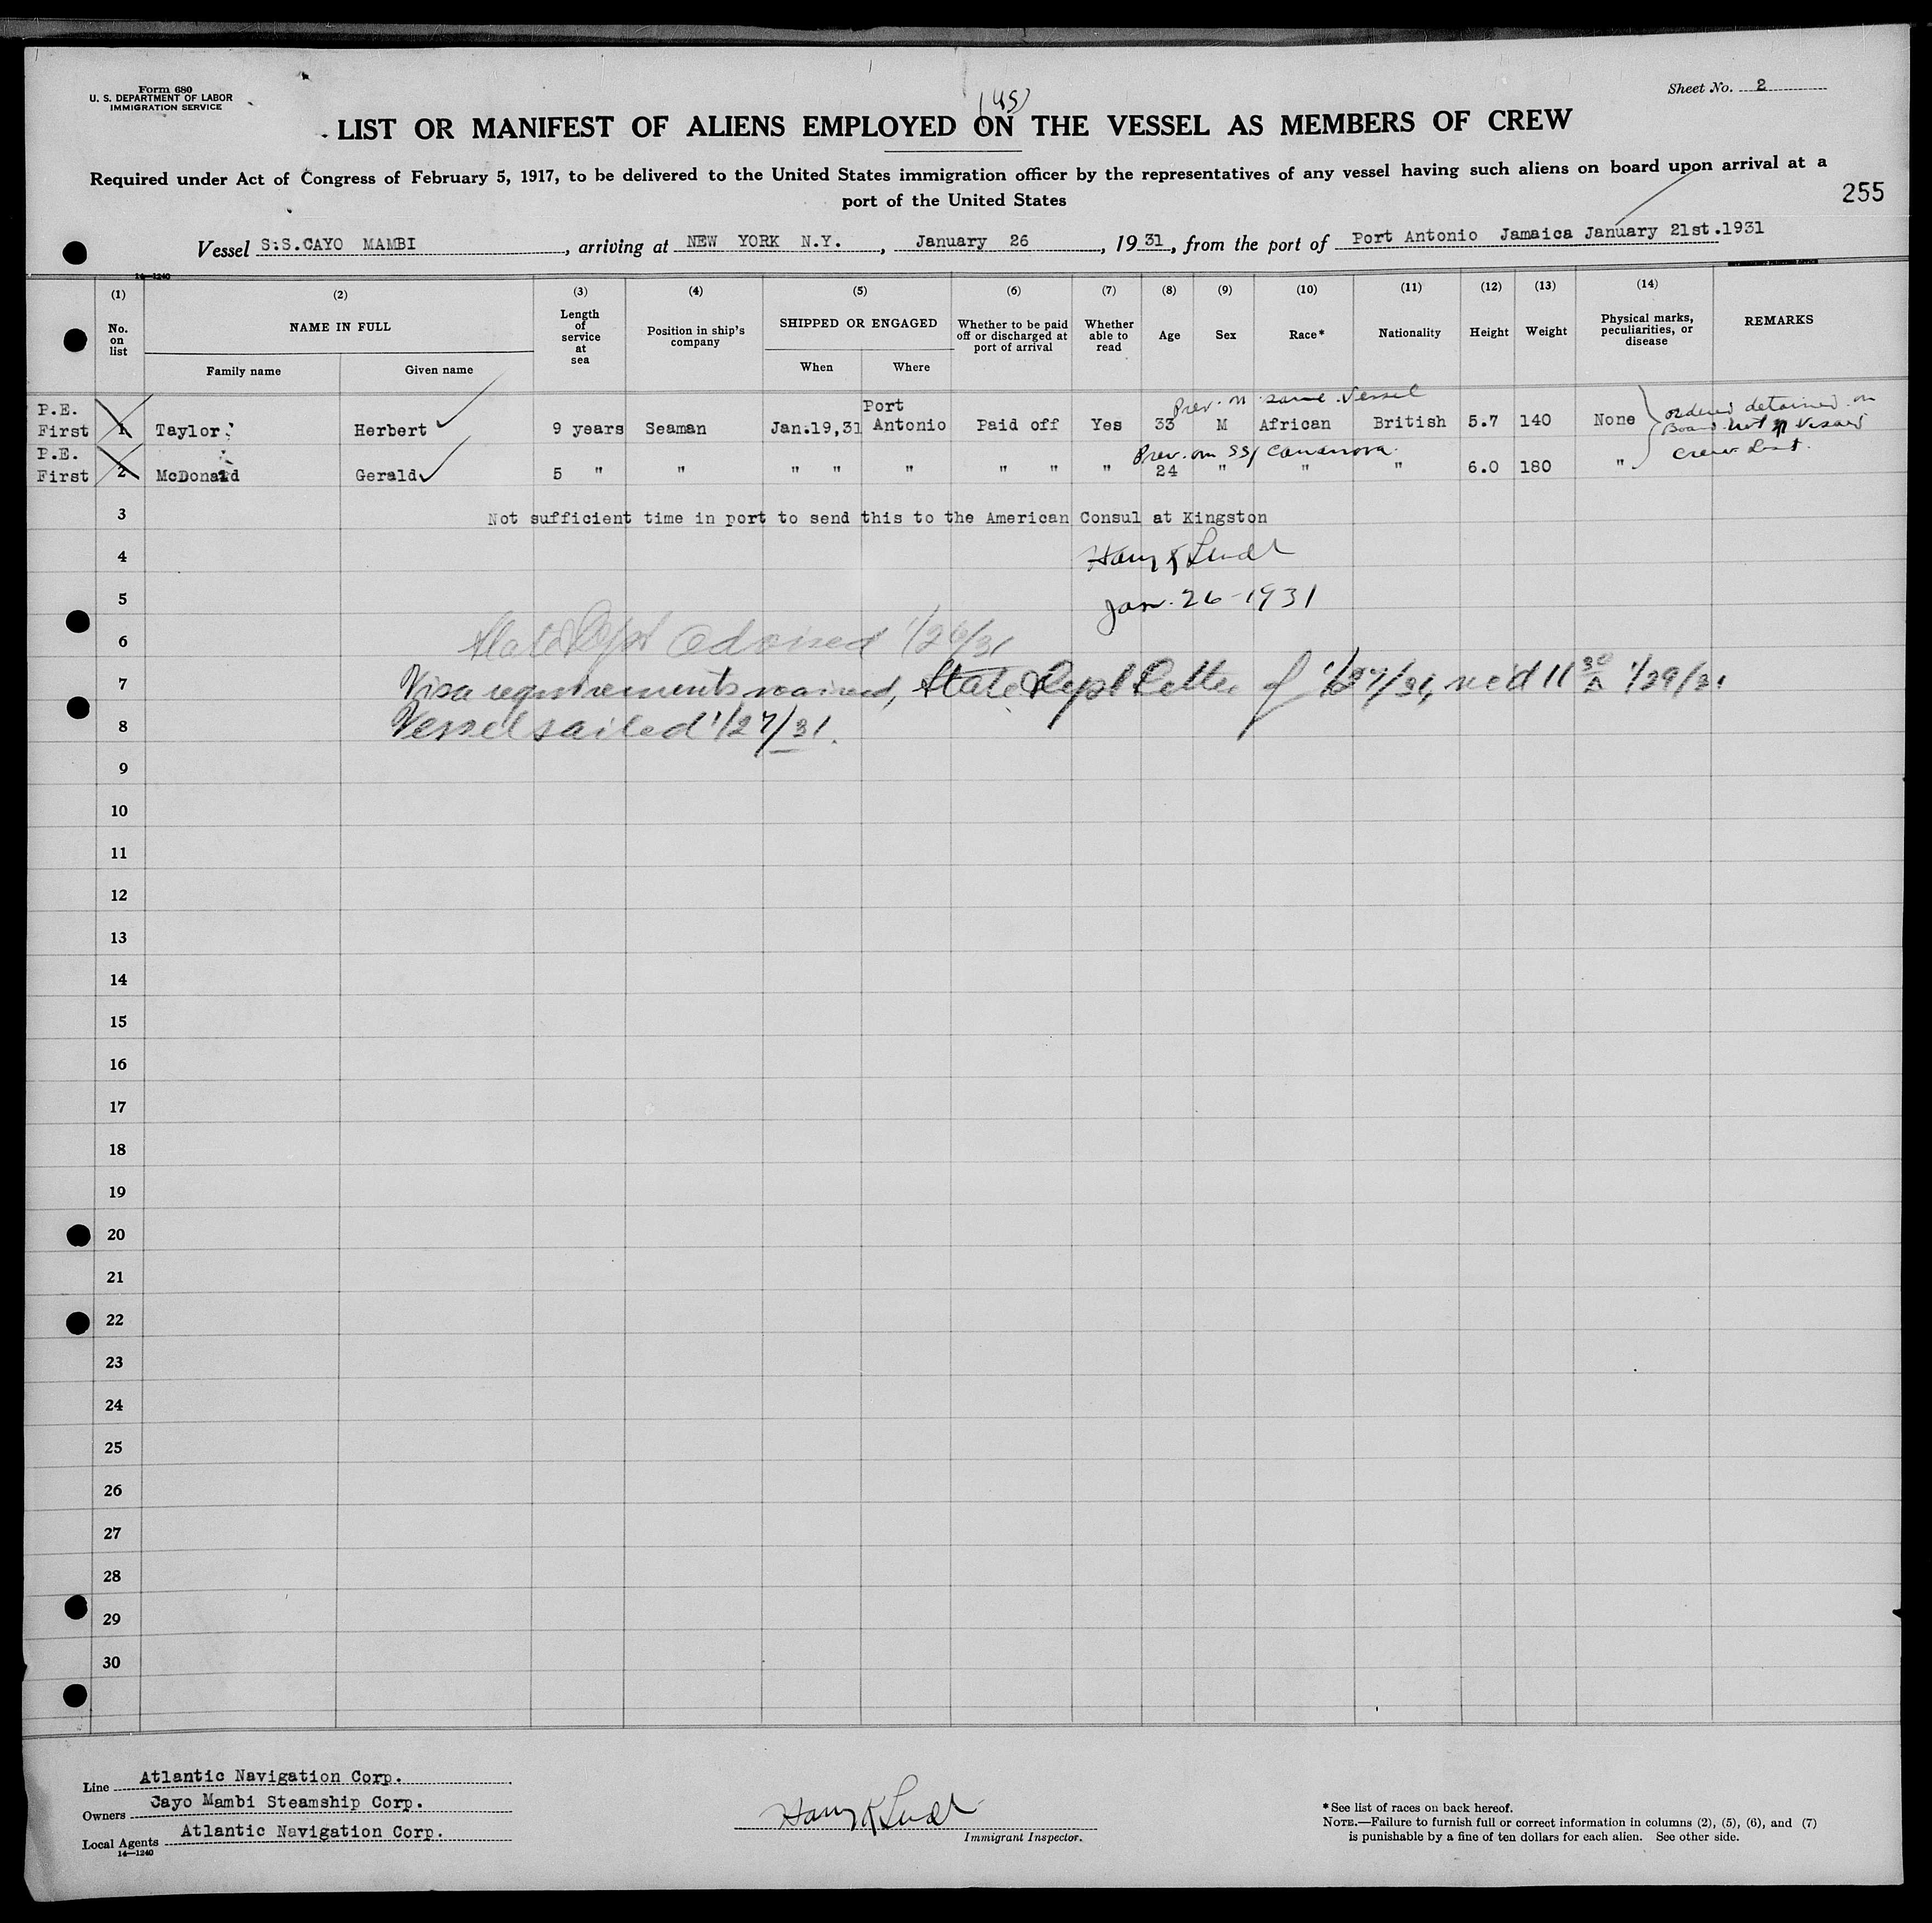 Form 680
U. S. DEPARTMENT OF LABOR
IMMIGRATION SERVICE
Sheet No. 2
(45)
LIST OR MANIFEST OF ALIENS EMPLOYED ON THE VESSEL AS MEMBERS OF CREW
Required under Act of Congress of February 5, 1917, to be delivered to the United States immigration officer by the representatives of any vessel having such aliens on board upon arrival at a
port of the United States
255
Vessel S.S.CAYO MAMBI, arriving at NEW YORK N.Y., January 26, 1931, from the port of Port Antonio Jamaica January 21st.1931
14—1240
(1) (2) (3) (4) (5) (6) (7) (8) (9) (10) (11) (12) (13) (14)
No. on list NAME IN FULL Length of service at sea Position in ship's company SHIPPED OR ENGAGED Whether to be paid off or discharged at port of arrival Whether able to read Age Sex Race* Nationality Height Weight Physical marks, peculiarities, or disease REMARKS
Family name Given name When Where
Prev. on same vessel
P.E. First 1 Taylor Herbert 9 years Seaman Jan.19,31 Port Antonio Paid off Yes 33 M African British 5.7 140 None ordered detained on Board not on Visaed Crew List.
Prev. on SS/ Casanova
P.E. First 2 McDonald Gerald 5 " " " " " " " " 24 " " " 6.0 180 "
3 Not sufficient time in port to send this to the American Consul at Kingston
4 Harry K
5 Jan. 26-1931
6 State Dept advised 1/26/31
7 Visa requirements waived, State Dept Letter of 1/27/31, rec'd 11 30 A 1/29/31
8 Vessel sailed 1/27/31.
9
10
11
12
13
14
15
16
17
18
19
20
21
22
23
24
25
26
27
28
29
30
Line Atlantic Navigation Corp.
Owners Cayo Mambi Steamship Corp.
Local Agents Atlantic Navigation Corp.
14—1240
Harry K
Immigrant Inspector.
*See list of races on back hereof.
NOTE.—Failure to furnish full or correct information in columns (2), (5), (6), and (7)
is punishable by a fine of ten dollars for each alien. See other side.